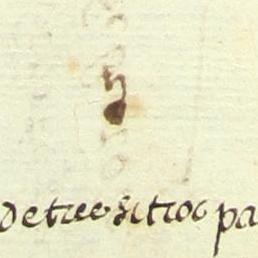 De tres sitios pa